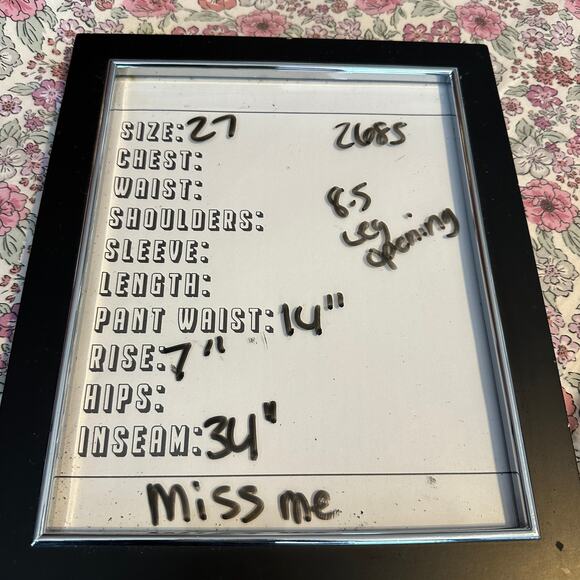 SIZE: 27
2685
CHEST:
WAIST:
SHOULDERS:
8.5
Leg
opening
SLEEVE:
LENGTH:
PANT WAIST: 14"
RISE: 7"
HIPS:
INSEAM: 34"
Miss me